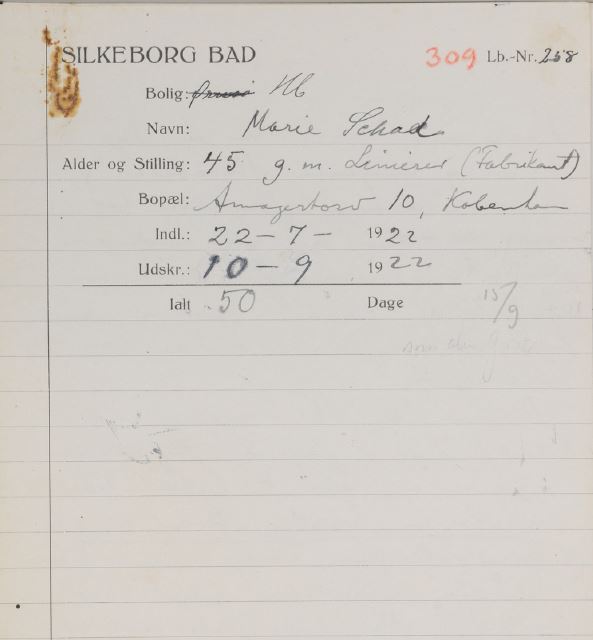 SILKEBORG BAD 309 Lb.-Nr. 258
Bolig: Hb
Navn: Marie Schad
Alder og Stilling: 45 g. m. Linierer (Fabrikant)
Bopæl: Amagertorv 10, København
Indl.: 22-7- 1922
Udskr.: 10-9 1922
Ialt 50 Dage 15/9